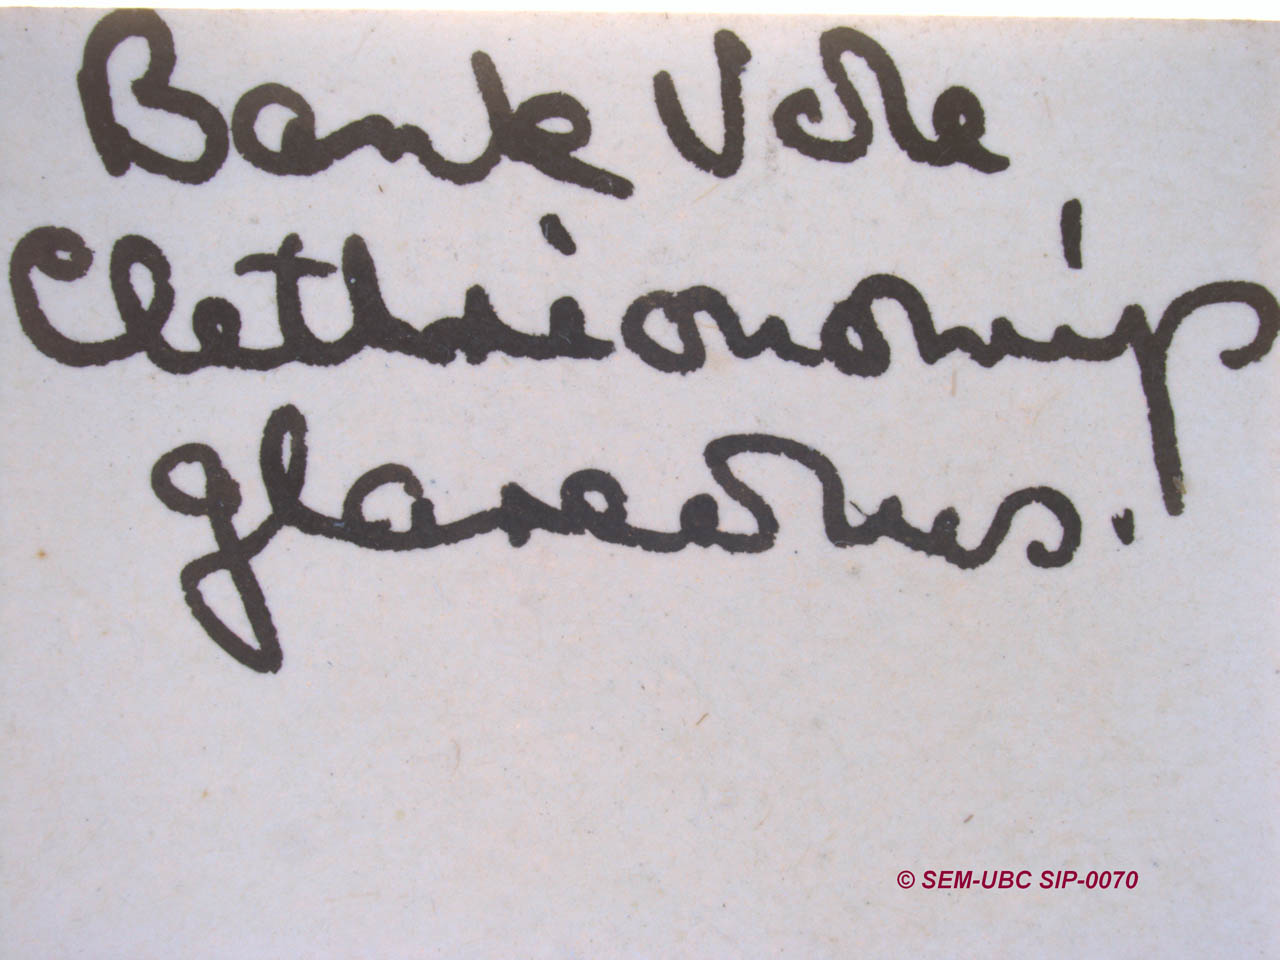 Bank Vole
Clethrionomys
glareolus.
© SEM-UBC SIP-0070